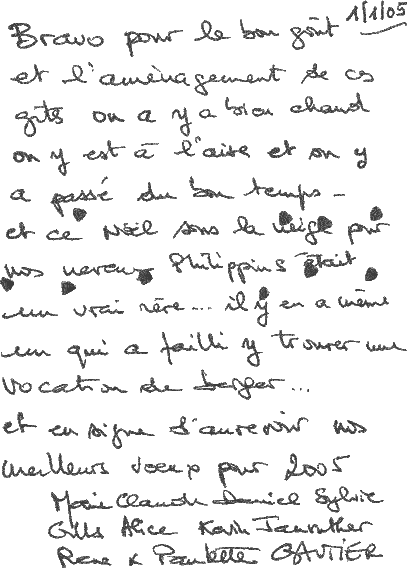 1/1/05
Bravo pour le bon goût
et l'aménagement de ces
gîtes on a y a bien chaud
on y est à l'aise et on y
a passé du bon temps -
et ce Noël sous la neige pour
nos neveux Philippins était
un vrai rêve... il y en a même
un qui a failli y trouver une
vocation de berger...
et en signe d'aurevoir nos
meilleurs voeux pour 2005
Marie Claude Daniel Sylvie
Gilles Alice Kevin
Rene & Paulette GAUTIER